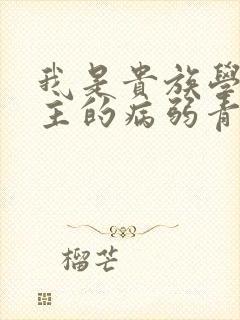 我是貴族學
主的病弱青
榴芒